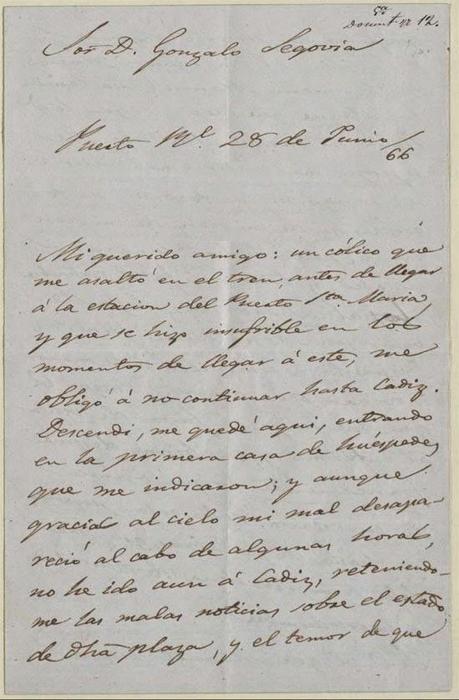 5ª
Documtº nº 12.
Sor D. Gonzalo Segovia
Puerto Rl. 28 de Junio /66
Mi querido amigo: un cólico que
me asaltó en el tren, antes de llegar
á la estacion del Puerto Sta. Maria
y que se hizo insufrible en los
momentos de llegar á este, me
obligó á no continuar hasta Cadiz.
Descendi, me quedé aqui, entrando
en la primera casa de huéspedes
que me indicaron; y aunque
gracias al cielo mi mal desapa-
reció al cabo de algunas horas,
no he ido aun á Cadiz, reteniendo-
me las malas noticias sobre el estado
de dha plaza, y el temor de que